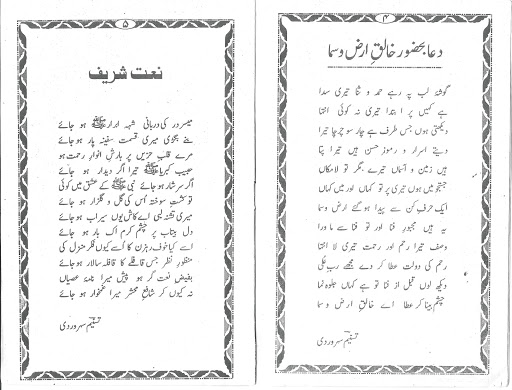 ۴
دعا بحضور خالقِ ارض و سما
گوشۂ لب پہ رہے حمد و ثنا تیری سدا
ہے کہیں پر ابتدا تیری نہ کوئی انتہا
دیکھتی ہوں جس طرف ہے چار سو چرچا تیرا
دیتے اسرار و رموزِ حسن ہیں تیرا پتا
ہیں زمین و آسماں تیرے مگر تو لامکاں
جستجو میں ہوں تیری پر تو کہاں اور میں کہاں
ایک حرفِ کن سے پیدا ہو گئے ارض و سما
ہے ہمیں مجبور فنا اور تو فنا سے ماورا
وصف تیرا رحم اور رحمت تیری لا انتہا
رحم کی دولت عطا کر دے مجھے ربِ علٰی
دیکھ لوں قبل از فنا تو ہے کہاں جلوہ نما
چشمِ بینا کر عطا اے خالقِ ارض و سما
تسنیم سہروردی
۵
نعت شریف
میسر در کی دربانی شہہِ ابرارﷺ ہو جائے
بنے بگڑی میری قسمت سفینہ پار ہو جائے
مرے قلبِ حزیں پر بارشِ انوارِ رحمت ہو
حبیبِ کبریاﷺ تیرا اگر دیدار ہو جائے
اگر سرشار ہو جائے نبیﷺ کے عشق میں کوئی
تو کشتِ سوختہ اس کی گل و گلزار ہو جائے
میری تشنہ لبی اے کاش یوں سیراب ہو جائے
دل بیتاب پر چشمِ کرم اک بار ہو جائے
اسے کیا خوف رہزن کا اسے کیوں فکر منزل کی
منظورِ نظر جس قافلے کا قافلہ سالار ہو جائے
بفیضِ نعت گر ہو پیش میرا نامۂ عصیاں
نہ کیوں کر شافعِ محشر میرا غمخوار ہو جائے
تسنیم سہروردی